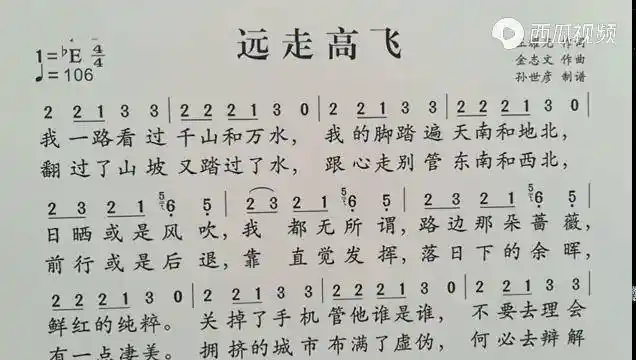 西瓜视频
远走高飞
1=♭E 4/4
♩=106
作词
金志文 作曲
孙世彦 制谱
2 2 2 1 3 3 | 2 2 2 1 3 0 | 2 2 2 1 3 3 | 2 2 2 1 3 0 |
我一路看过千山和万水，我的脚踏遍天南和地北，
翻过了山坡又踏过了水，跟心走别管东南和西北，
2 3 2 1 6 5 | 2 3 2 1 6 5 | 2 3 2 1 6 5
日晒或是风吹，我都无所谓，路边那朵蔷薇，
前行或是后退，靠直觉发挥，落日下的余晖，
2 2 2 1 3 0 | 2 2 1 3 3 2 2 2 1 3 0 | 2 2 1 3 3
鲜红的纯粹。关掉了手机管他谁是谁，不要去理会
有一点凄美。拥挤的城市布满了虚伪，何必去辩解